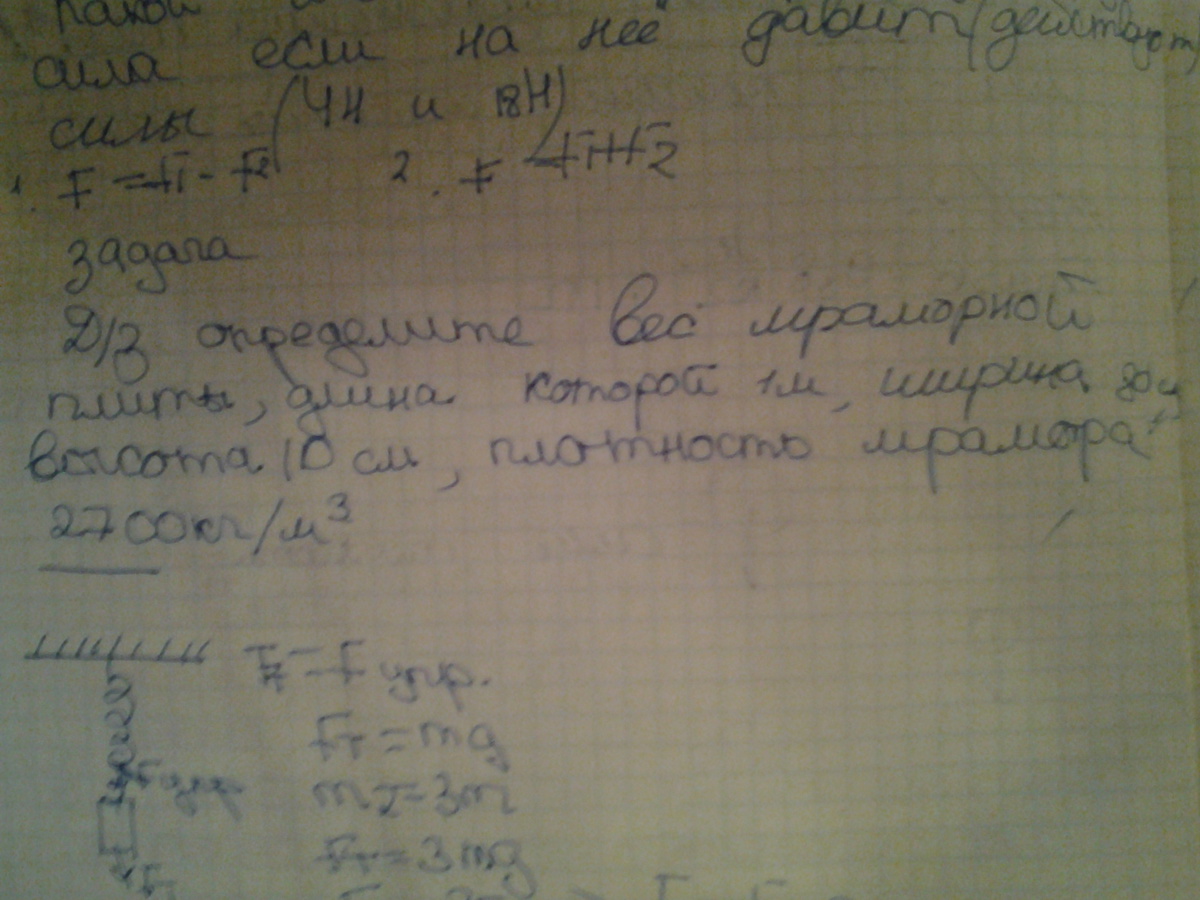 какой
сила если на неё давит (действуют)
силы (4Н и 18Н)
1. F = F1 - F2 2. F = F1 + F2
задача
Д/з определите вес мраморной
плиты, длина которой 1м, ширина 80
высота 10 см, плотность мрамора
2700кг/м³
Fт = Fупр.
Fт = mg
Fупр
m = 3m
Fт = 3mg